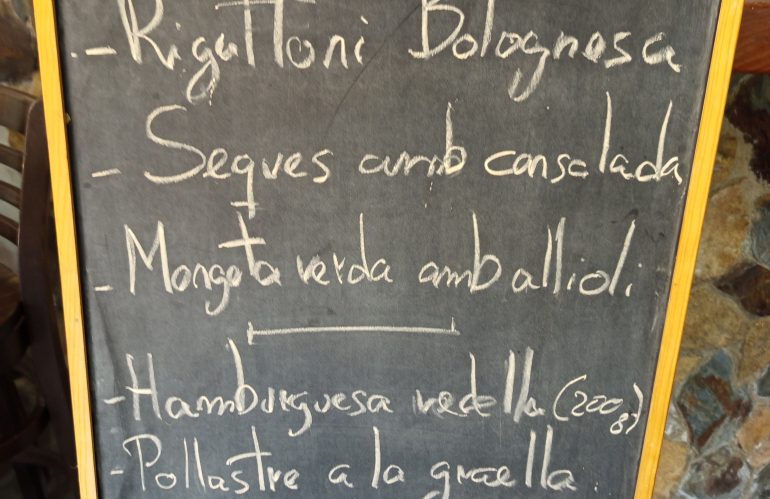 - Rigattoni Bolognesa
- Seques amb cansalada
- Mongeta verda amb allioli
- Hamburguesa vedella (200g)
- Pollastre a la graella.